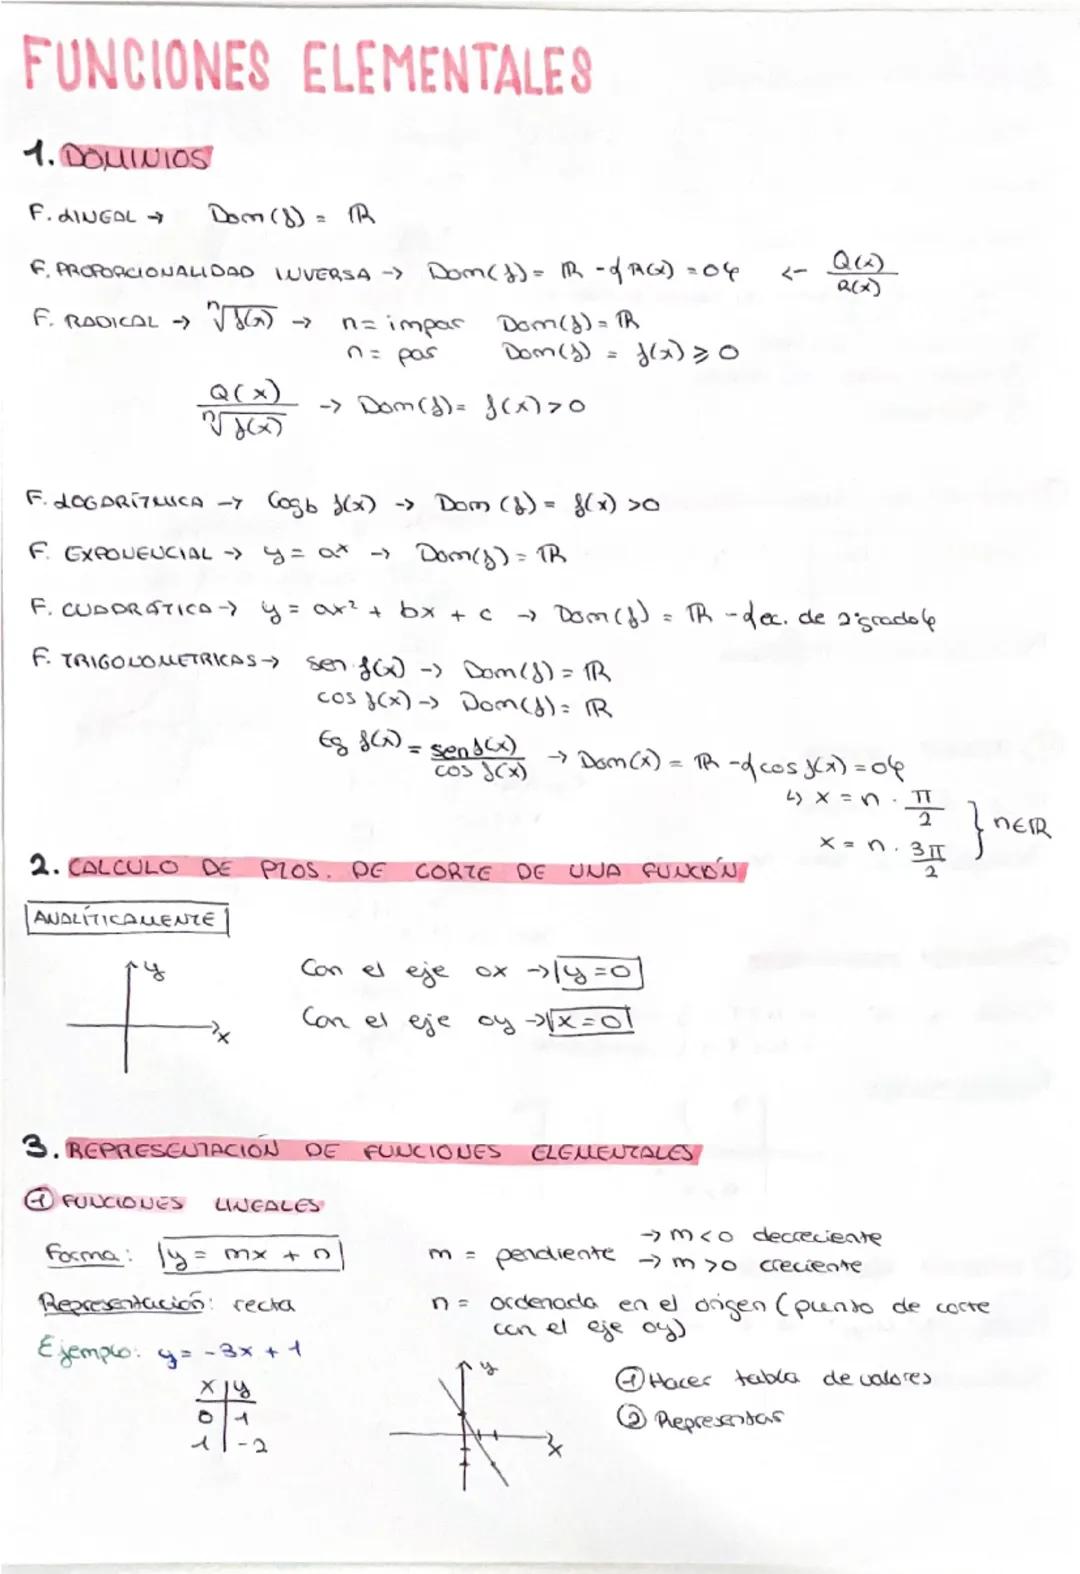 FUNCIONES ELEMENTALES
1. DOMINIOS
F. LINEAL → Dom(f) = ℝ
F. PROPORCIONALIDAD INVERSA → Dom(f) = ℝ - {R(x) = 0} ← Q(x)/R(x)
F. RADICAL → ⁿ√f(x) → n = impar Dom(f) = ℝ
n = par Dom(f) = f(x) ⩾ 0
Q(x)/ⁿ√f(x) → Dom(f) = f(x) > 0
F. LOGARÍTMICA → logb f(x) → Dom (f) = f(x) > 0
F. EXPONENCIAL → y = aˣ → Dom(f) = ℝ
F. CUADRÁTICA → y = ax² + bx + c → Dom(f) = ℝ - {ec. de 2º grado}
F. TRIGONOMETRICAS → sen f(x) → Dom(f) = ℝ
cos f(x) → Dom(f) = ℝ
tg f(x) = sen f(x)/cos f(x) → Dom(x) = ℝ - {cos f(x) = 0}
↳ x = n · π/2
x = n · 3π/2 } n∈ℝ
2. CALCULO DE PTOS. DE CORTE DE UNA FUNCIÓN
ANALÍTICAMENTE
y
x
Con el eje ox → y = 0
Con el eje oy → x = 0
3. REPRESENTACIÓN DE FUNCIONES ELEMENTALES
① FUNCIONES LINEALES
Forma: y = mx + n
m = pendiente → m < 0 decreciente
→ m > 0 creciente
Representación: recta
n = ordenada en el origen (punto de corte
con el eje oy)
Ejemplo: y = -3x + 1
x | y
0 | 1
1 | -2
y
x
① Hacer tabla de valores
② Representar